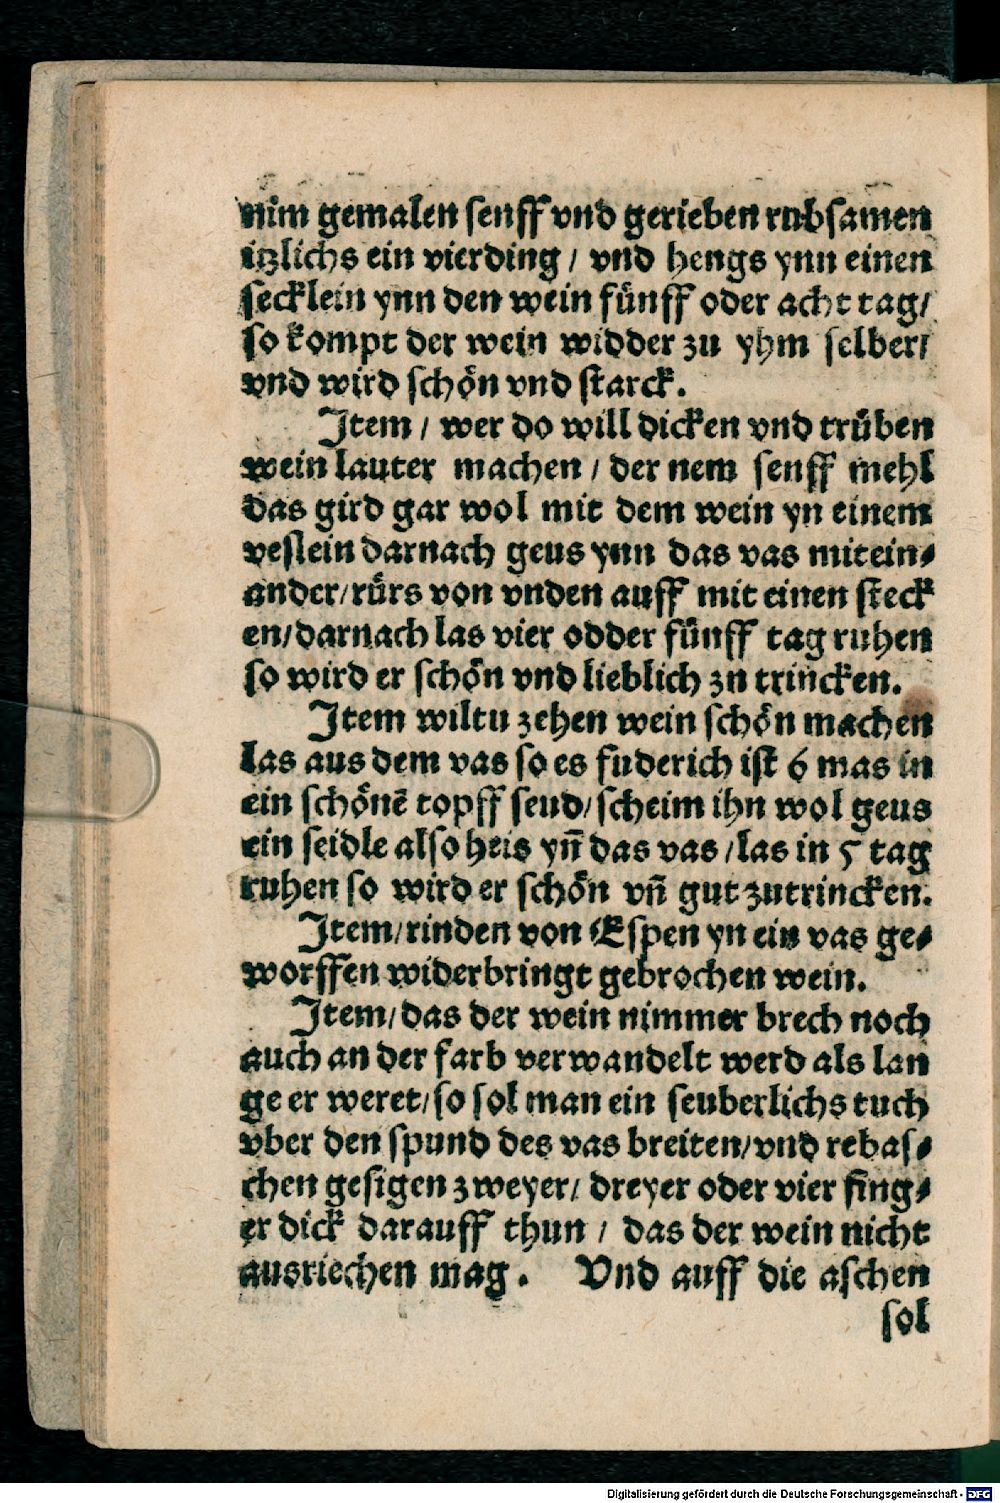 nim gemalen senff vnd gerieben rubsamen
itzlichs ein vierding / vnd hengs ynn einen
secklein ynn den wein fünff oder acht tag/
so kompt der wein widder zu yhm selber/
vnd wird schön vnd starck.
Item / wer do will dicken vnd trüben
wein lauter machen / der nem senff mehl
das gird gar wol mit dem wein yn einem
veslein darnach geus ynn das vas mitein⸗
ander/rürs von vnden auff mit einen steck
en/darnach las vier odder fünff tag ruhen
so wird er schön vnd lieblich zu trincken.
Item wiltu zehen wein schön machen
las aus dem vas so es fuderich ist 6 mas in
ein schönē topff seud/scheim ihn wol geus
ein seidle also heis yn̄ das vas /las in 5 tag
ruhen so wird er schön vn̄ gut zutrincken.
Item/rinden von Espen yn ein vas ge⸗
worffen widerbringt gebrochen wein.
Item/das der wein nimmer brech noch
auch an der farb verwandelt werd als lan
ge er weret/so sol man ein seuberlichs tuch
vber den spund des vas breiten/vnd rebas⸗
chen gesigen zweyer/ dreyer oder vier fing⸗
er dick darauff thun / das der wein nicht
ausriechen mag. Vnd auff die aschen
sol
Digitalisierung gefördert durch die Deutsche Forschungsgemeinschaft - DFG